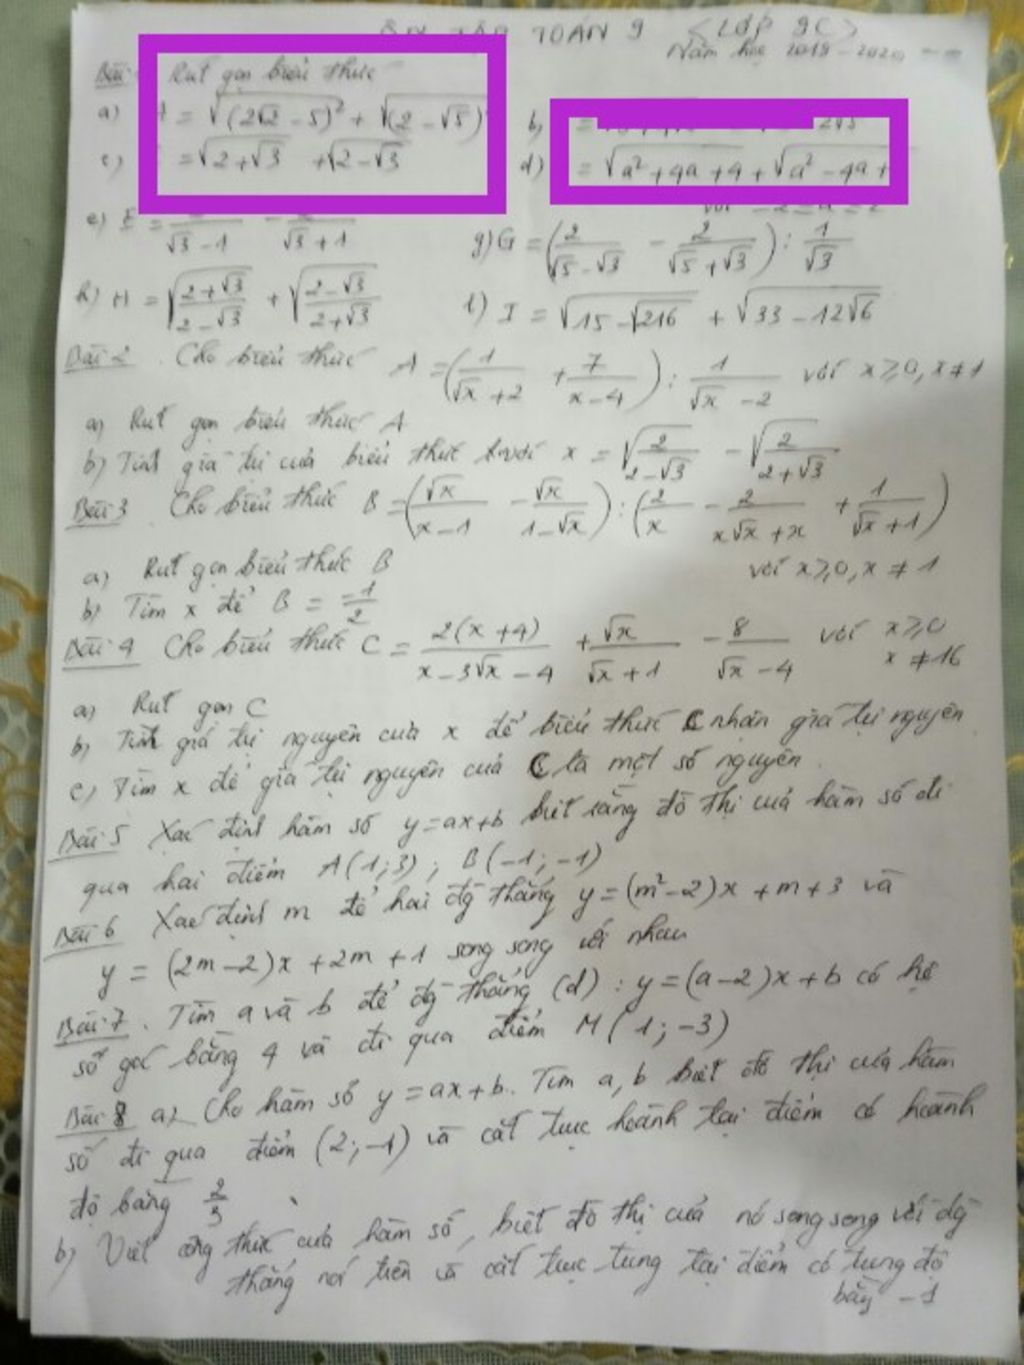 ÔN TẬP TOÁN 9 <LỚP 9C>
Năm học 2019-2020
Bài Rút gọn biểu thức
a) = √(2√2 - 5)² + √(2 - √5)
b) = 2√5
c) = √2+√3 + √2-√3
d) = √a²+4a+4 + √a²-4a+
e) E = √3-1 - √3+1
g) G = (2/√5-√3 - 2/√5+√3) : 1/√3
h) H = √2+√3/2-√3 + √2-√3/2+√3
i) I = √15-√216 + √33-12√6
Bài 2 Cho biểu thức A = (1/√x+2 + 7/x-4) : 1/√x-2 với x ≥ 0, x ≠ 1
a) Rút gọn biểu thức A
b) Tính giá trị của biểu thức với x = √2/2-√3 - √2/2+√3
Bài 3 Cho biểu thức B = (√x/x-1 - √x/1-√x) : (2/x - 2/x√x+x + 1/√x+1)
với x ≥ 0, x ≠ 1
a) Rút gọn biểu thức B
b) Tìm x để B = -1/2
Bài 4 Cho biểu thức C = 2(x+4)/x-3√x-4 + √x/√x+1 - 8/√x-4 với x ≥ 0 x ≠ 16
a) Rút gọn C
b) Tính giá trị nguyên của x để biểu thức C nhận giá trị nguyên
c) Tìm x để giá trị nguyên của C là một số nguyên.
Bài 5 Xác định hàm số y = ax+b biết rằng đồ thị của hàm số đi
qua hai điểm A(1;3); B(-1;-1)
Bài 6 Xác định m để hai đg thẳng y = (m²-2)x + m+3 và
y = (2m-2)x + 2m + 1 song song với nhau
Bài 7. Tìm a và b để đg thẳng (d) : y = (a-2)x + b có hệ
số góc bằng 4 và đi qua điểm M(1;-3)
Bài 8 a) Cho hàm số y = ax+b. Tìm a, b biết đồ thị của hàm
số đi qua điểm (2;-1) và cắt trục hoành tại điểm có hoành
độ bằng 2/3
b) Viết công thức của hàm số, biết đồ thị của nó song song với đg
thẳng nói trên và cắt trục tung tại điểm có tung độ
bằng -1